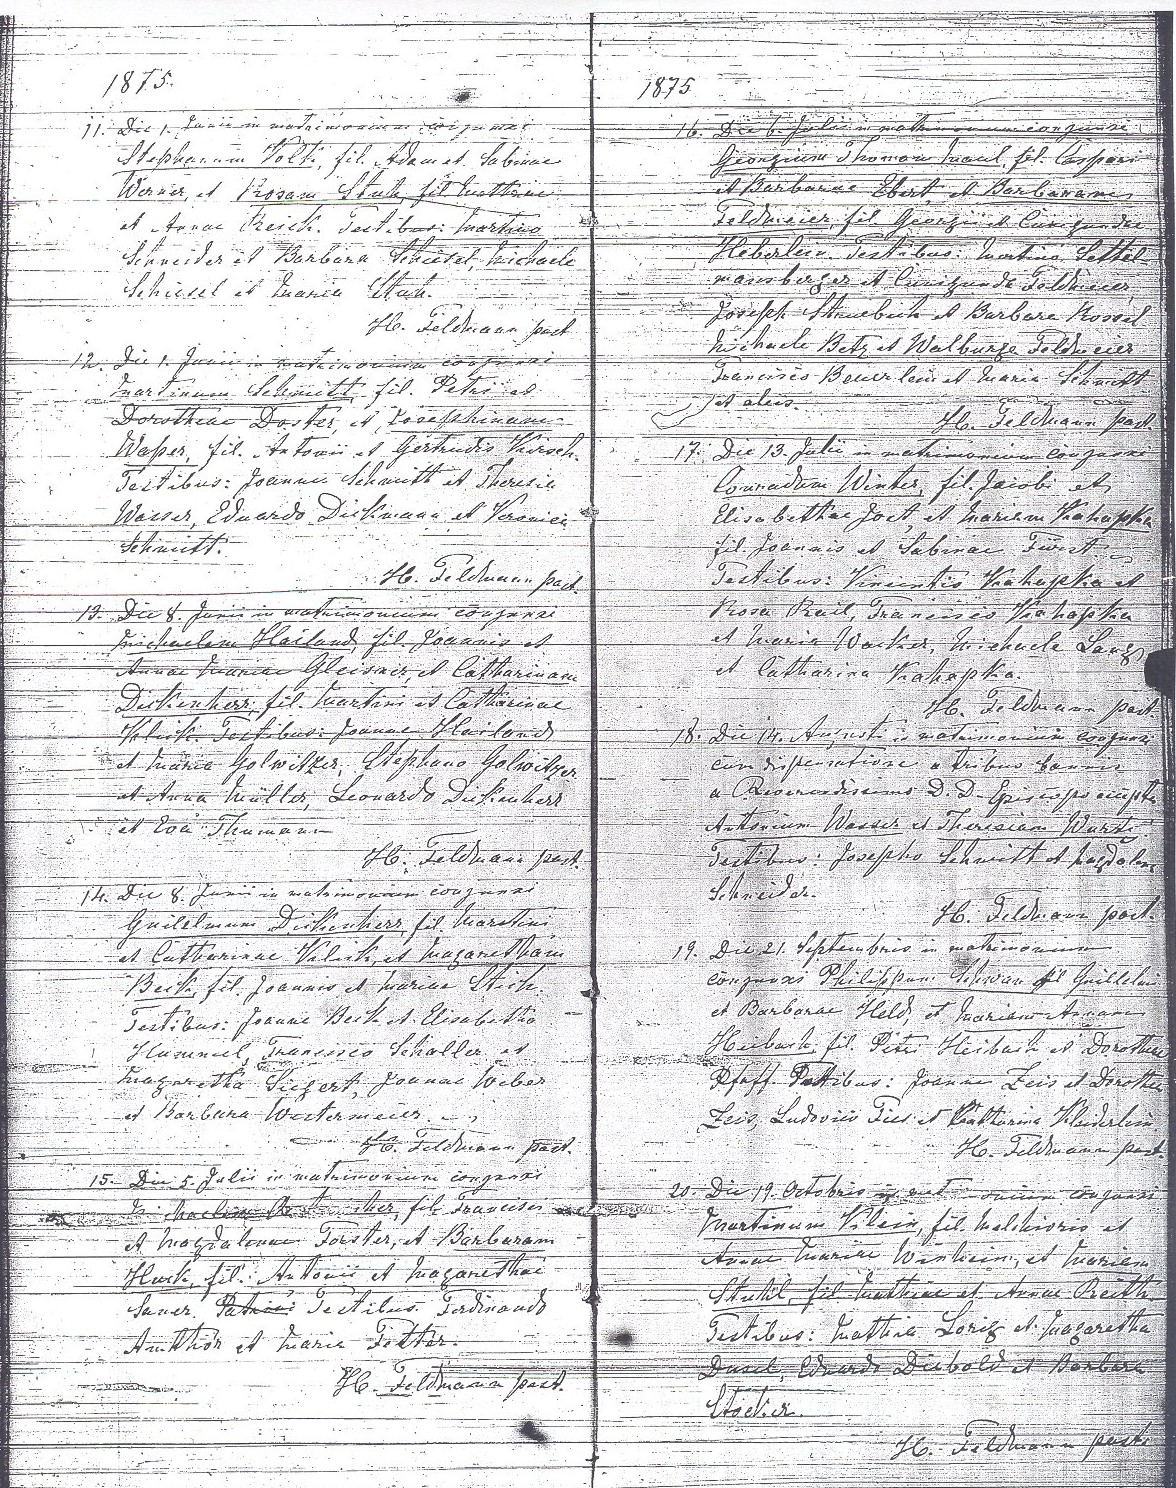 1875.
11. Die 1. Junii in matrimonium conjunxi
Stephanum Volk, fil. Adam et Sabinae
Werner, et Rosam Stuh, fil. Mathiae
et Annae Reich. Testibus: Martino
Schneider et Barbara Schiesel, Michaele
Schiesel et Maria Stuh.
H. Feldmann past.
12. Die 1. Junii in matrimonium conjunxi
Martinum Schmitt, fil. Petri et
Dorotheae Doster, et Josephinam
Waßer, fil. Antonii et Gertrudis Kirsch.
Testibus: Joanne Schmitt et Theresia
Wasser, Eduardo Dickmann et Veronica
Schmitt.
H. Feldmann past.
13. Die 8. Junii in matrimonium conjunxi
Michaelem Hailand, fil. Joannis et
Annae Mariae Gleisner, et Catharinam
Dickenherr, fil. Martini et Catharinae
Klick. Testibus: Joanne Hailand
et Maria Golwitzer, Stephano Golwitzer
et Anna Müller, Leonardo Dickenherr
et Eva Thumann
H. Feldmann past.
14. Die 8. Junii in matrimonium conjunxi
Guilelmum Dickenherr, fil. Martini
et Catharinae Klick, et Magaretham
Beck, fil. Joannis et Mariae Stich.
Testibus: Joanne Beck et Elisabetha
Hummel, Francisco Schaller et
Magaretha Siegert, Joanne Weber
et Barbara Westermeier.
H. Feldmann past.
15. Die 5. Julii in matrimonium conjunxi
Michaelem fil. Francisci
et Magdalenae Forster, et Barbaram
Huck, fil. Antonii et Magarethae
Sauer. Testibus: Ferdinando
Amthor et Maria Fetter.
H. Feldmann past.
1875
16. Die 6. Julii in matrimonium conjunxi
Georgium Thomam Maul, fil. Caspari
et Barbarae Ebert, et Barbaram
Feldmeier, fil. Georgii et Cunigundae
Heberlein. Testibus: Martino Settel-
mansberger et Cunigunda Feldmeier,
Joseph et Barbara Rossel
Michaele Betz et Walburga Feldmeier
Francisco Beuerlein et Maria Schmitt
et aleis.
H. Feldmann past.
17. Die 13. Julii in matrimonium conjunxi
Conradum Winter, fil. Jacobi et
Elisabethae Jost, et Mariam Kahapka
fil. Joannis et Sabinae Fürst
Testibus: Vincentio Kahapka et
Rosa Reil, Francisco Kahapka
et Maria Wacker, Michaele Lang
et Catharina Kahapka.
H. Feldmann past.
18. Die 14. Augusti in matrimonium conjunxi
cum dispensatione a tribus bannis
a Reverendissimo D. D. Episcopo
Antonium Wasser et Theresiam
Testibus: Josepho Schmitt et Magdalena
Schneider.
H. Feldmann past.
19. Die 21. Septembris in matrimonium
conjunxi Philippum Schwam fil Guillelmi
et Barbarae Held, et Mariam Annam
Heibach, fil. Petri Heibach et Dorotheae
Pfaff. Testibus: Joanne Zeis et Dorothea
Zeis, Ludovico Fies et Katharina Kleiderlein
H. Feldmann past.
20. Die 19. Octobris in matrimonium conjunxi
Martinum Klein, fil. Melchioris et
Annae Mariae Winheim, et Mariam
Stuhl, fil Mathiae et Annae Reith
Testibus: Mathia Loriz et Magaretha
Dusel, Eduardo Diebold et Barbara
Stöcker.
H. Feldmann past.